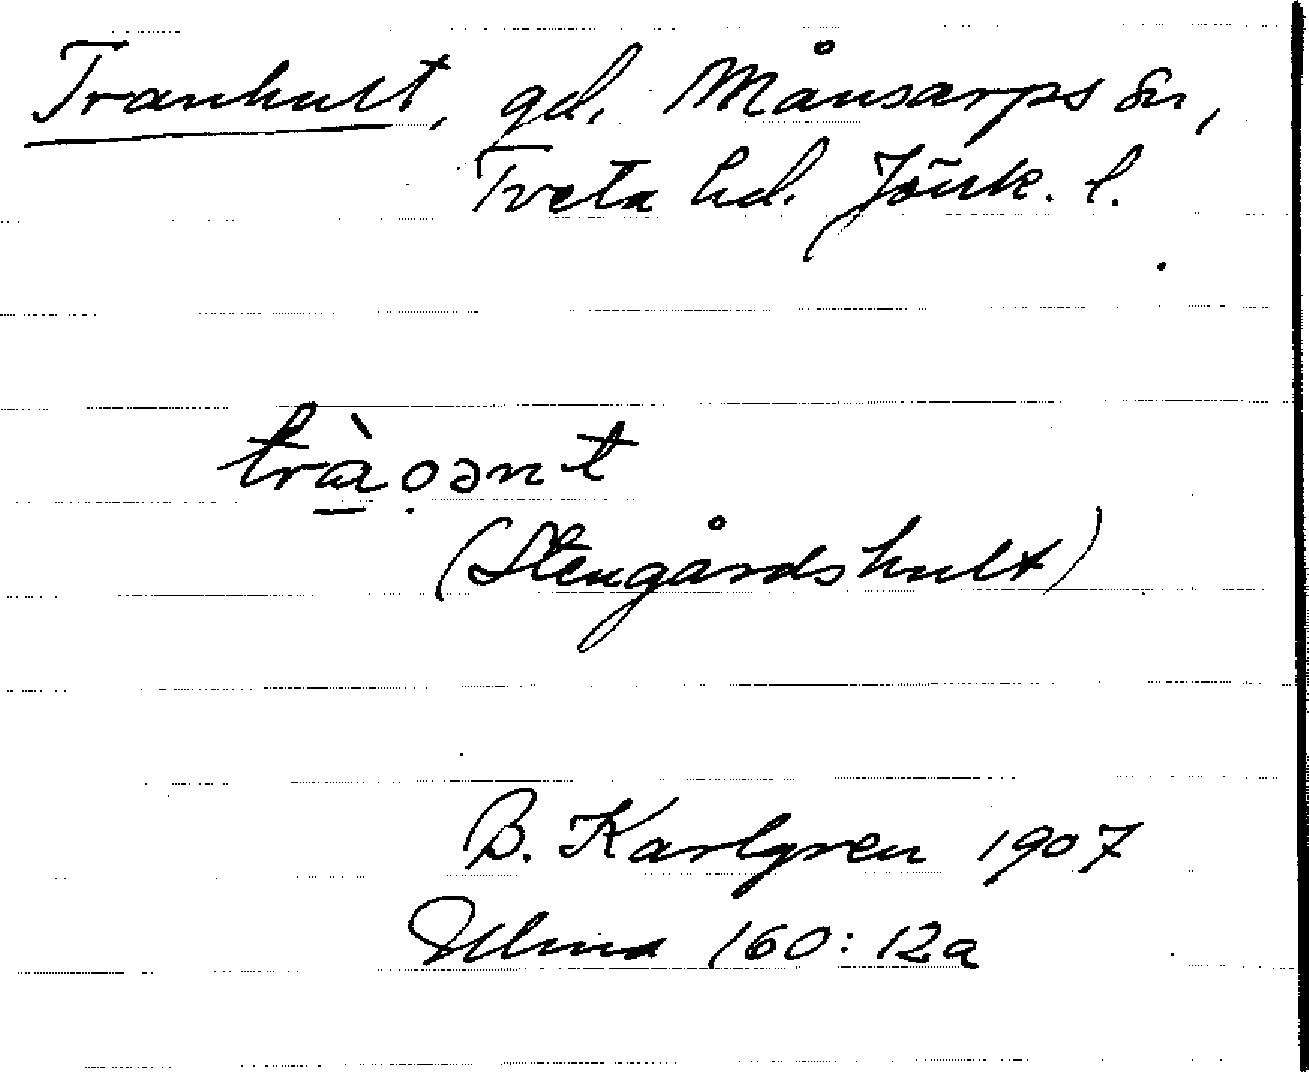 Tranhult, gd. Månsarps sn,
Tveta hd. Jönk. l.
(Stengårdshult)
B. Karlgren 1907
160:12a